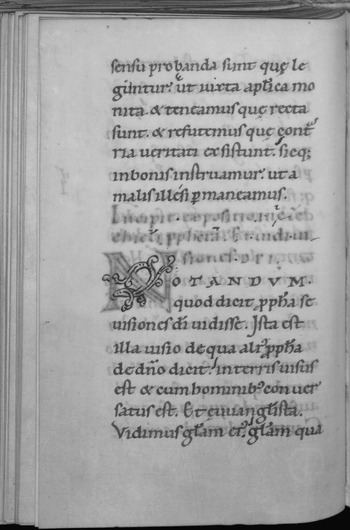 sensu probanda sunt quę le
gūntur. ut iuxta aplica mo
nita. & teneamus quę recta
sunt. & refutemus quę cont
ria ueritati existunt. sicq;
in bonis instruamur. ut a
malis illęsi pmaneamus.
Incipit expositio
NOTANDVM.
quod dicit ppha se
uisiones dī uidisse. Ista est
illa uisio de qua alt ppha
de dño dicit. in terris uisus
est & cum hominib; conuer
satus est. Et euuanglista.
Vidimus głam ei; głam qua